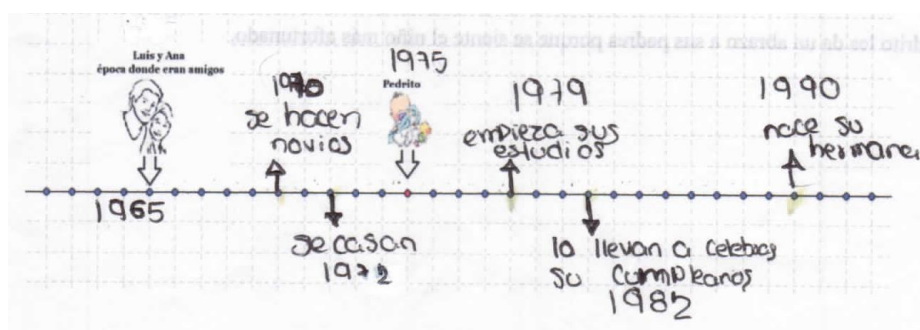 Luis y Ana
época donde eran amigos
1965
1970
se hacen
novios
se casan
1972
1975
Pedrito
1979
empieza sus
estudios
lo llevan a celebrar
su cumpleaños
1982
1990
nace su
hermane